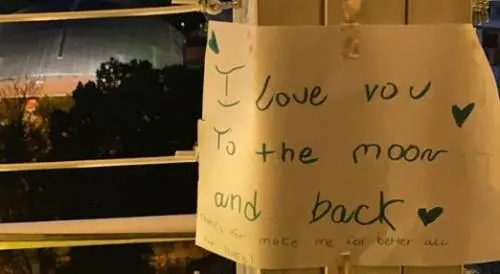 I love you
To the moon
and back
(Thanks for make me feel better all
the times)